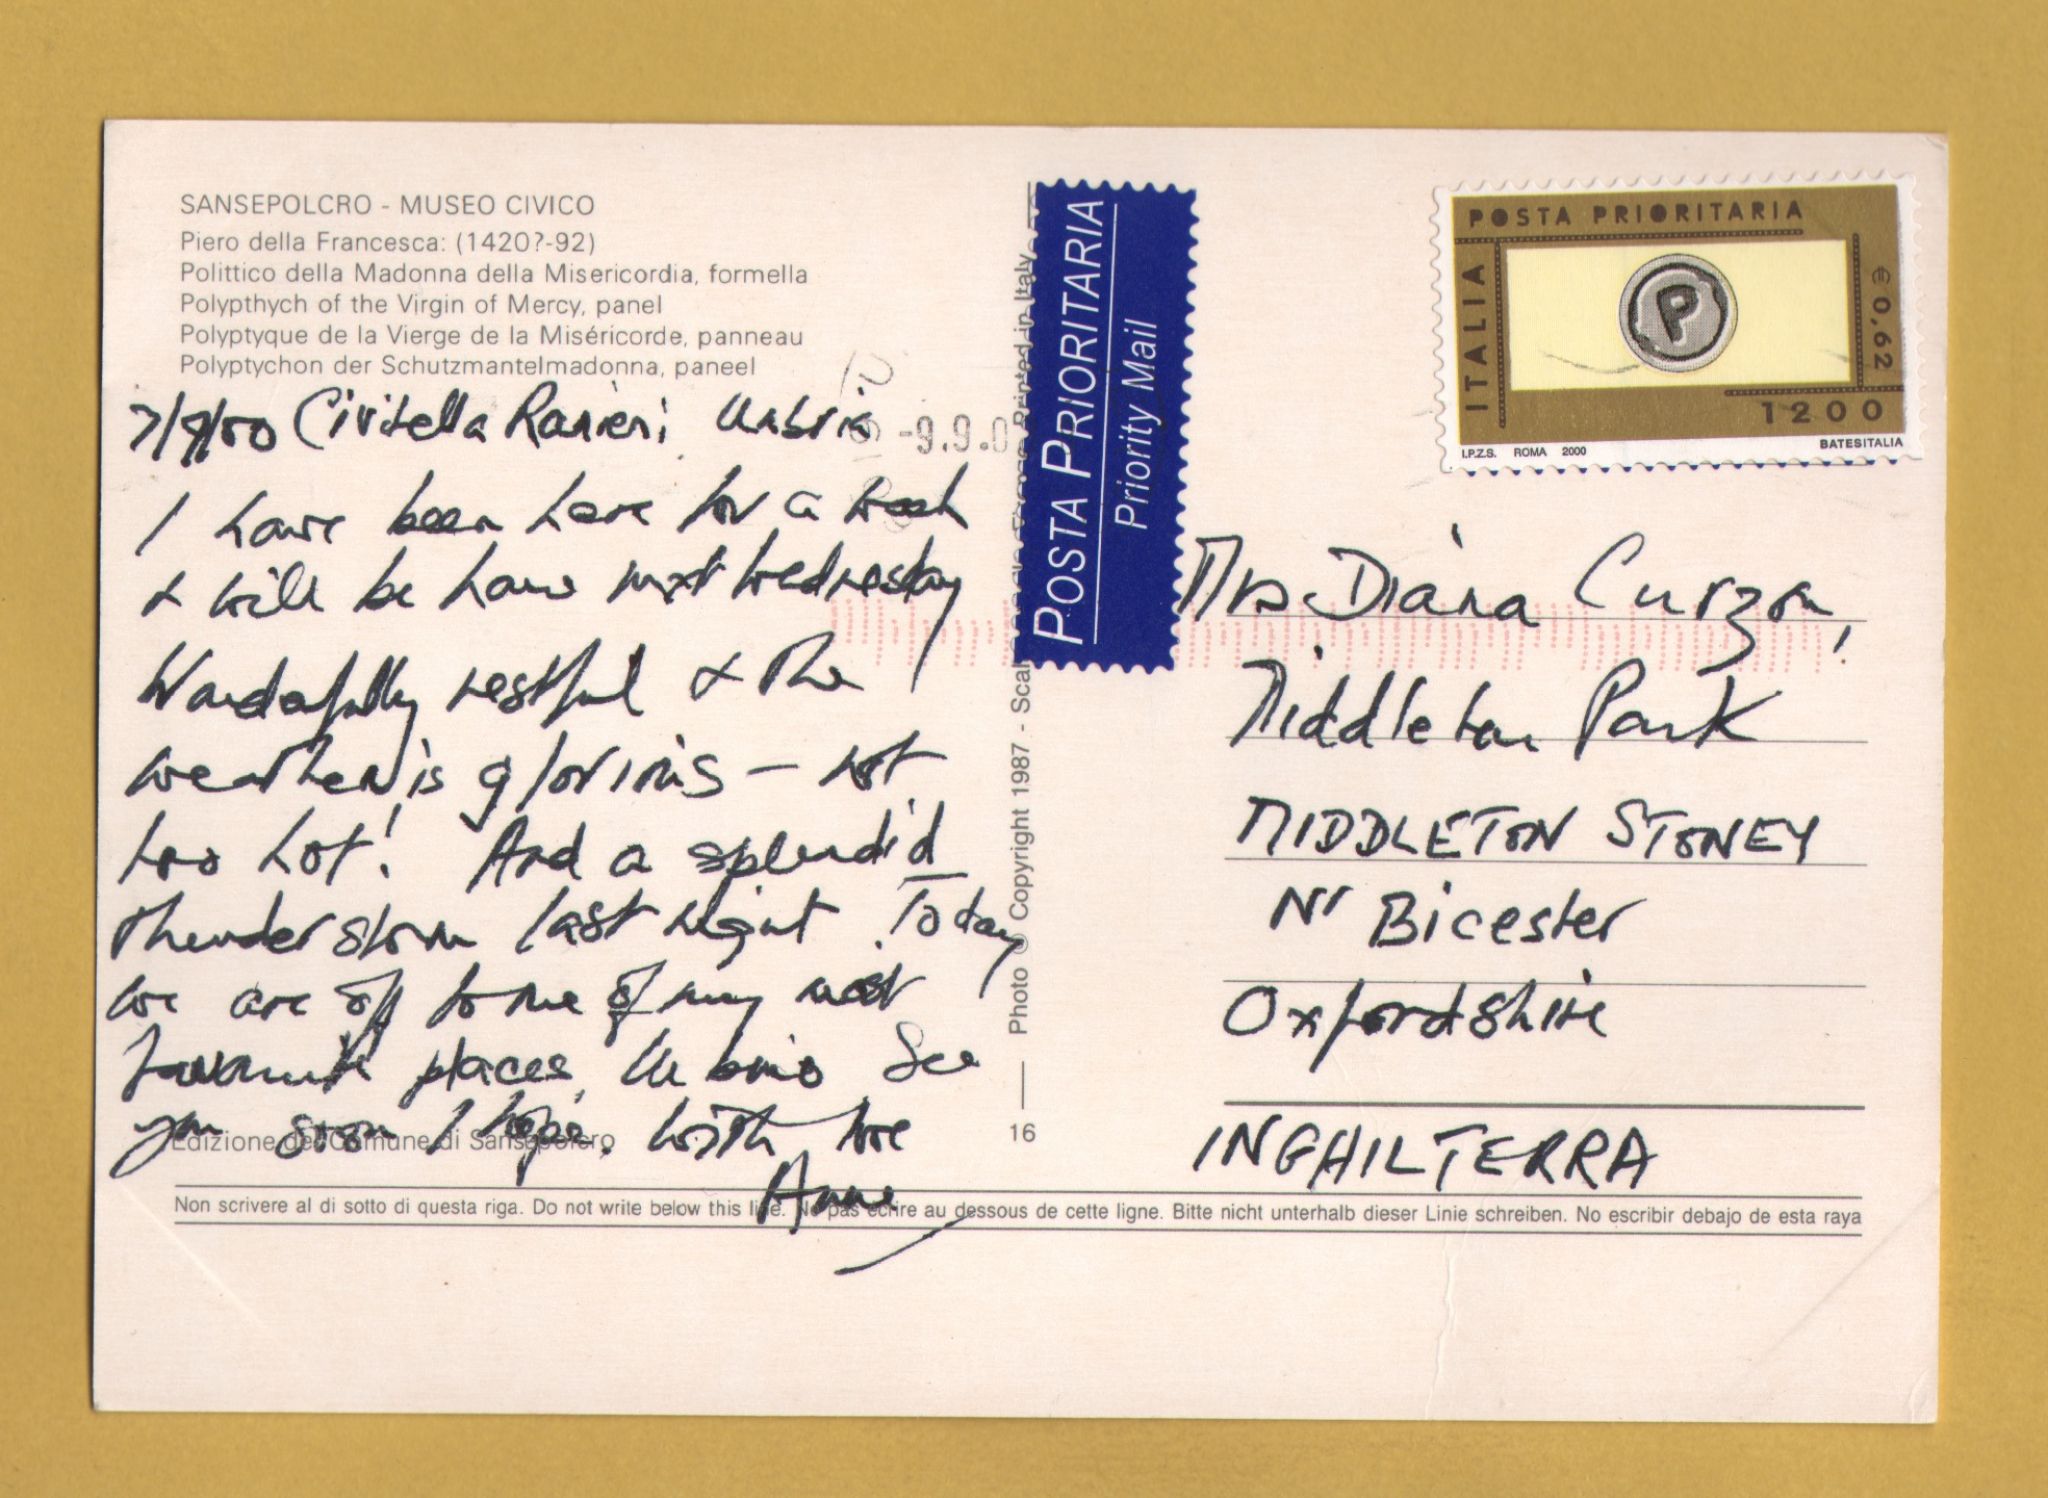 SANSEPOLCRO - MUSEO CIVICO
Piero della Francesca: (1420?-92)
Polittico della Madonna della Misericordia, formella
Polypthych of the Virgin of Mercy, panel
Polyptyque de la Vierge de la Miséricorde, panneau
Polyptychon der Schutzmantelmadonna, paneel
7/9/00 Civitella Ranieri Umbria
I have been here for a week
& will be home next Wednesday
Wonderfully restful & the
weather is glorious – not
too hot! And a splendid
thunderstorm last night. Today
we are off to one of my most
favourite places, Urbino See
you soon I hope. With love
Anne
Edizione del Comune di Sansepolcro
-9.9.0
Photo © Copyright 1987 - Scal
Printed in Italy
16
POSTA PRIORITARIA
Priority Mail
POSTA PRIORITARIA
ITALIA
P
€ 0,62
1200
I.P.Z.S. ROMA 2000
BATESITALIA
Mrs Diana Curzon,
Middleton Park
MIDDLETON STONEY
Nr Bicester
Oxfordshire
INGHILTERRA
Non scrivere al di sotto di questa riga. Do not write below this line. Ne pas écrire au dessous de cette ligne. Bitte nicht unterhalb dieser Linie schreiben. No escribir debajo de esta raya